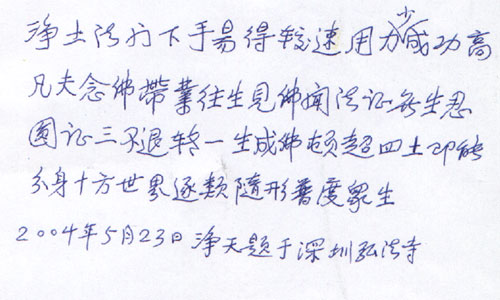 净土法门下手易得较速用力少成功高
凡夫念佛带業往生見佛闻法证无生忍
圆证三不退转一生成佛顿超四土即能
分身十方世界逐類隨形普度眾生
2004年5月23日净天题于深圳弘法寺